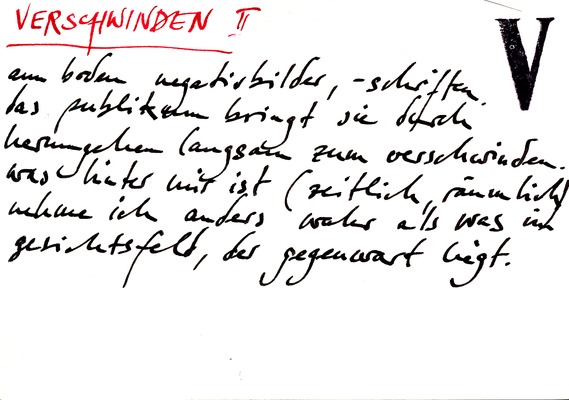 VERSCHWINDEN II
V
am boden negativbilder, -schriften.
das publikum bringt sie durch
herumgehen langsam zum verschwinden.
was hinter mir ist (zeitlich, räumlich)
nehme ich anders wahr als was im
gesichtsfeld, der gegenwart liegt.